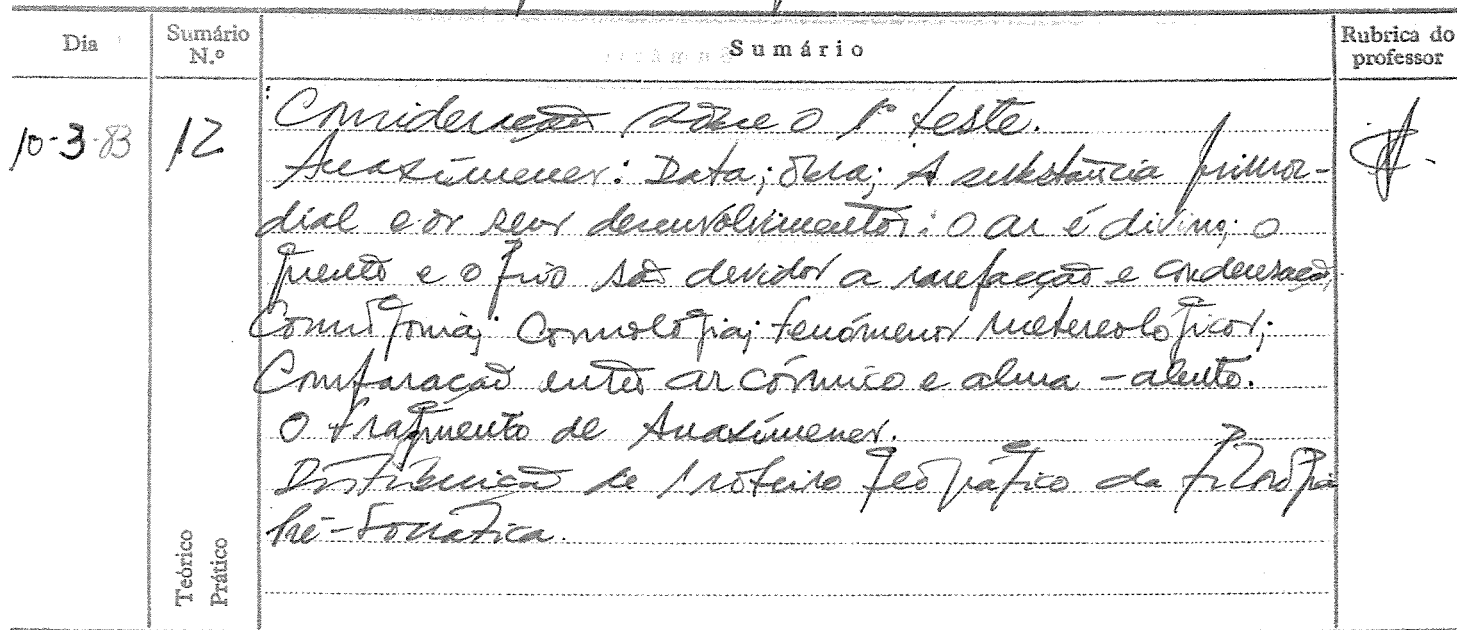 Dia
Sumário N.º
Sumário
Rubrica do professor
10-3-83
12
Consideração sôbre o 1º teste.
Anaxímenes: Data; obra; A substância primor-
dial e os seus desenvolvimentos: o ar é divino; o
quente e o frio são devidos a rarefacção e condensação;
Cosmogonia; Cosmologia; fenómenos metereológicos;
Comparação entre ar cósmico e alma - alento.
O fragmento de Anaxímenes.
Distribuição de 1 roteiro geográfico da filosofia
Pré-Socrática.
Teórico
Prático